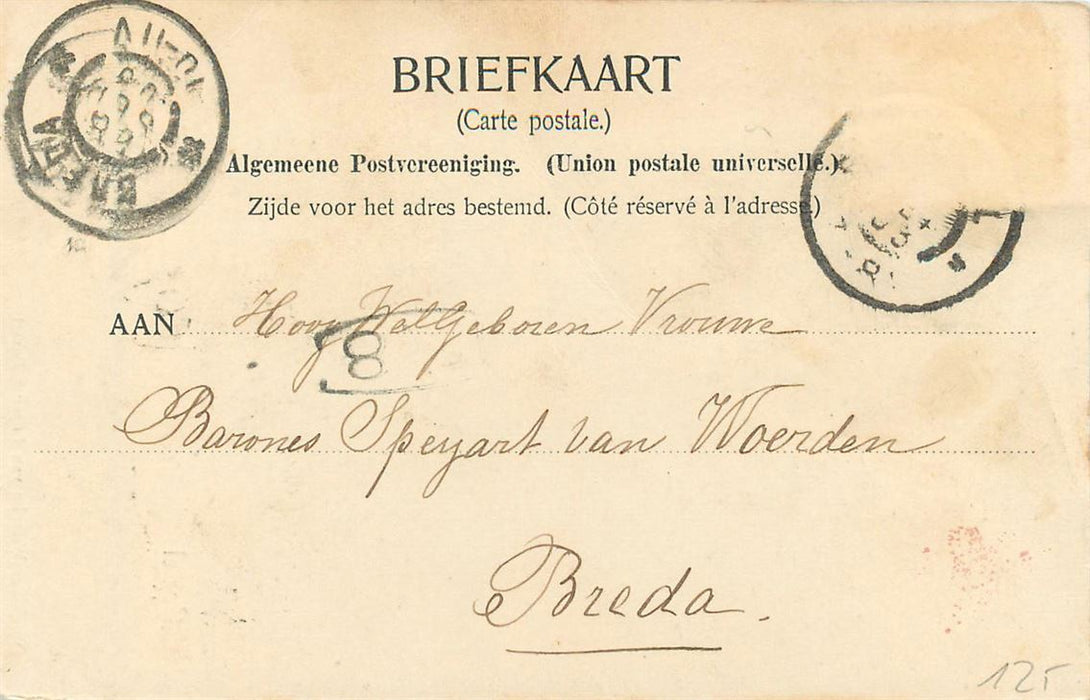 BRIEFKAART
(Carte postale.)
Algemeene Postvereeniging. (Union postale universelle.)
Zijde voor het adres bestemd. (Côté réservé à l'adresse.)
AAN Hoog WelGeboren Vrouwe
8
Barones Speyart van Woerden
Breda.
BREDA
125